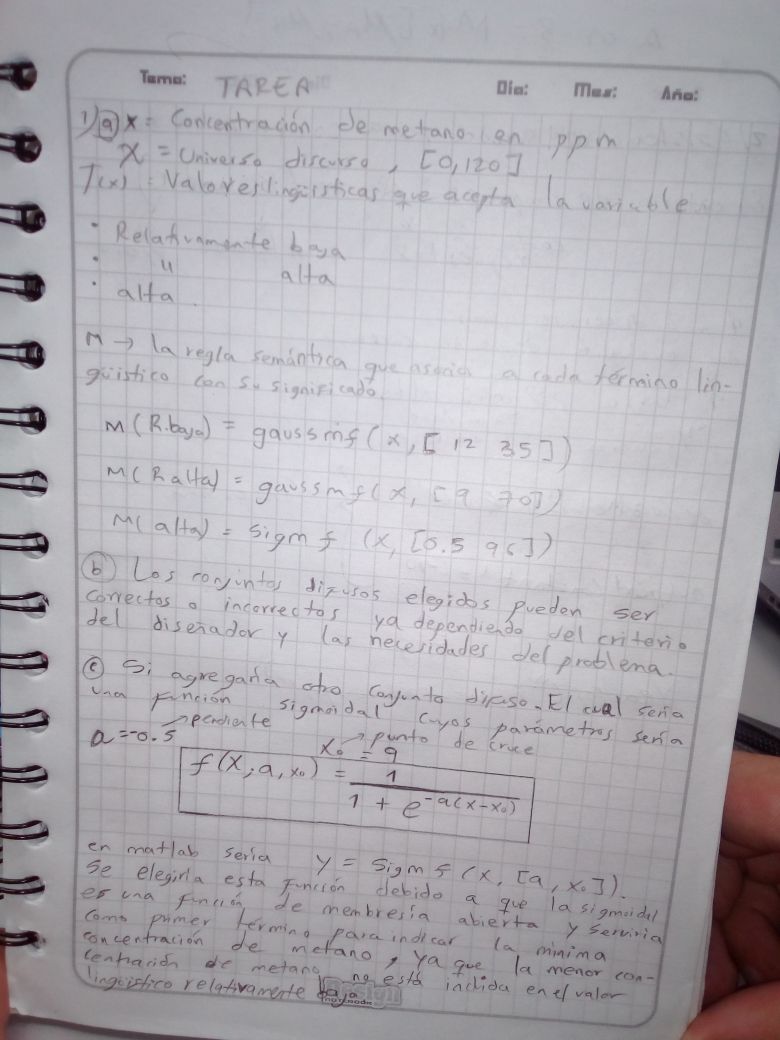 Tema: TAREA Día: Mes: Año:
1) a) x = Concentración de metano en ppm
X = Universo discurso, [0,120]
T(x) : Valores lingüísticas que acepta la variable
• Relativamente baja
• " alta
• alta.
M → la regla semántica que asocia a cada término lin-
güístico con su significado.
M(R.baja) = gaussmf(x, [12 35])
M(R alta) = gaussmf(x, [9 70])
M(alta) = sigmf (x, [0.5 96])
b) Los conjuntos difusos elegidos pueden ser
correctos o incorrectos ya dependiendo del criterio
del diseñador y las necesidades del problema.
c) Si agregaría otro conjunto difuso. El cual sería
una función sigmoidal cuyos parámetros sería
a=-0.5 → pendiente x₀ = 9 → punto de cruce
f(x; a, x₀) = 1 / (1 + e^-a(x-x₀))
en matlab sería y = sigmf (x, [a, x₀]).
Se elegiría esta función debido a que la sigmoidal
es una función de membresía abierta y serviría
como primer término para indicar la mínima
concentración de metano, ya que la menor con-
centración de metano no está inclida en el valor
lingüístico relativamente baja.
Design